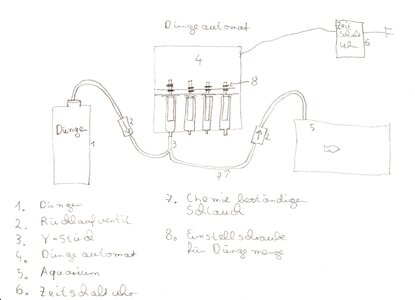 Düngeautomat
Zeit
Schalt
Uhr
6
4
8
Dünger
1
2
3
2
5
7
1. Dünger
2. Rücklaufventil
3. Y-Stück
4. Düngeautomat
5. Aquarium
6. Zeitschaltuhr
7. Chemie beständigen
Schlauch
8. Einstellschraube
für Düngemenge